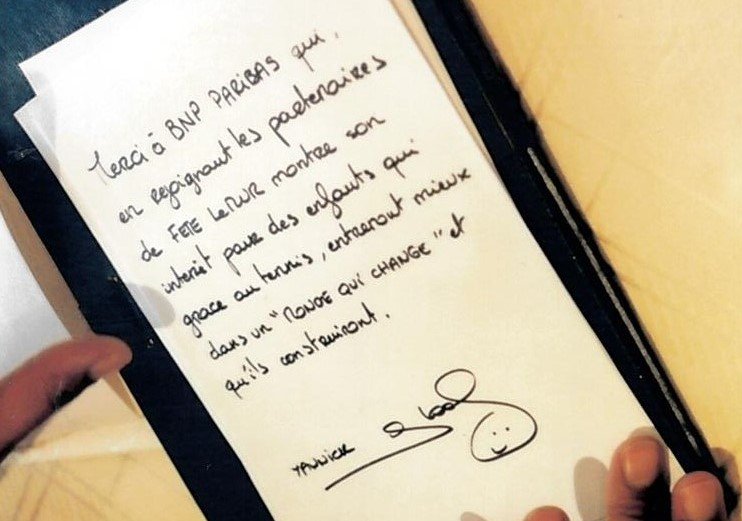 Merci à BNP PARIBAS qui,
en rejoignant les partenaires
de FETE LE MUR montre son
interêt pour des enfants qui
grace au tennis, entreront mieux
dans un "MONDE QUI CHANGE" et
qu'ils construiront.
YANNICK